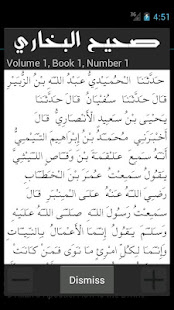 4:51
صحيح البخاري
Volume 1, Book 1, Number 1
حَدَّثَنَا الْحُمَيْدِيُّ عَبْدُ اللَّهِ بْنُ الزُّبَيْرِ
قَالَ حَدَّثَنَا سُفْيَانُ قَالَ حَدَّثَنَا
يَحْيَى بْنُ سَعِيدٍ الْأَنْصَارِيُّ قَالَ
أَخْبَرَنِي مُحَمَّدُ بْنُ إِبْرَاهِيمَ التَّيْمِيُّ
أَنَّهُ سَمِعَ عَلْقَمَةَ بْنَ وَقَّاصٍ اللَّيْثِيَّ
يَقُولُ سَمِعْتُ عُمَرَ بْنَ الْخَطَّابِ
رَضِيَ اللَّهُ عَنْهُ عَلَى الْمِنْبَرِ قَالَ
سَمِعْتُ رَسُولَ اللَّهِ صَلَّى اللَّهُ عَلَيْهِ
وَسَلَّمَ يَقُولُ إِنَّمَا الْأَعْمَالُ بِالنِّيَّاتِ
وَإِنَّمَا لِكُلِّ امْرِئٍ مَا نَوَى فَمَنْ كَانَتْ
Dismiss